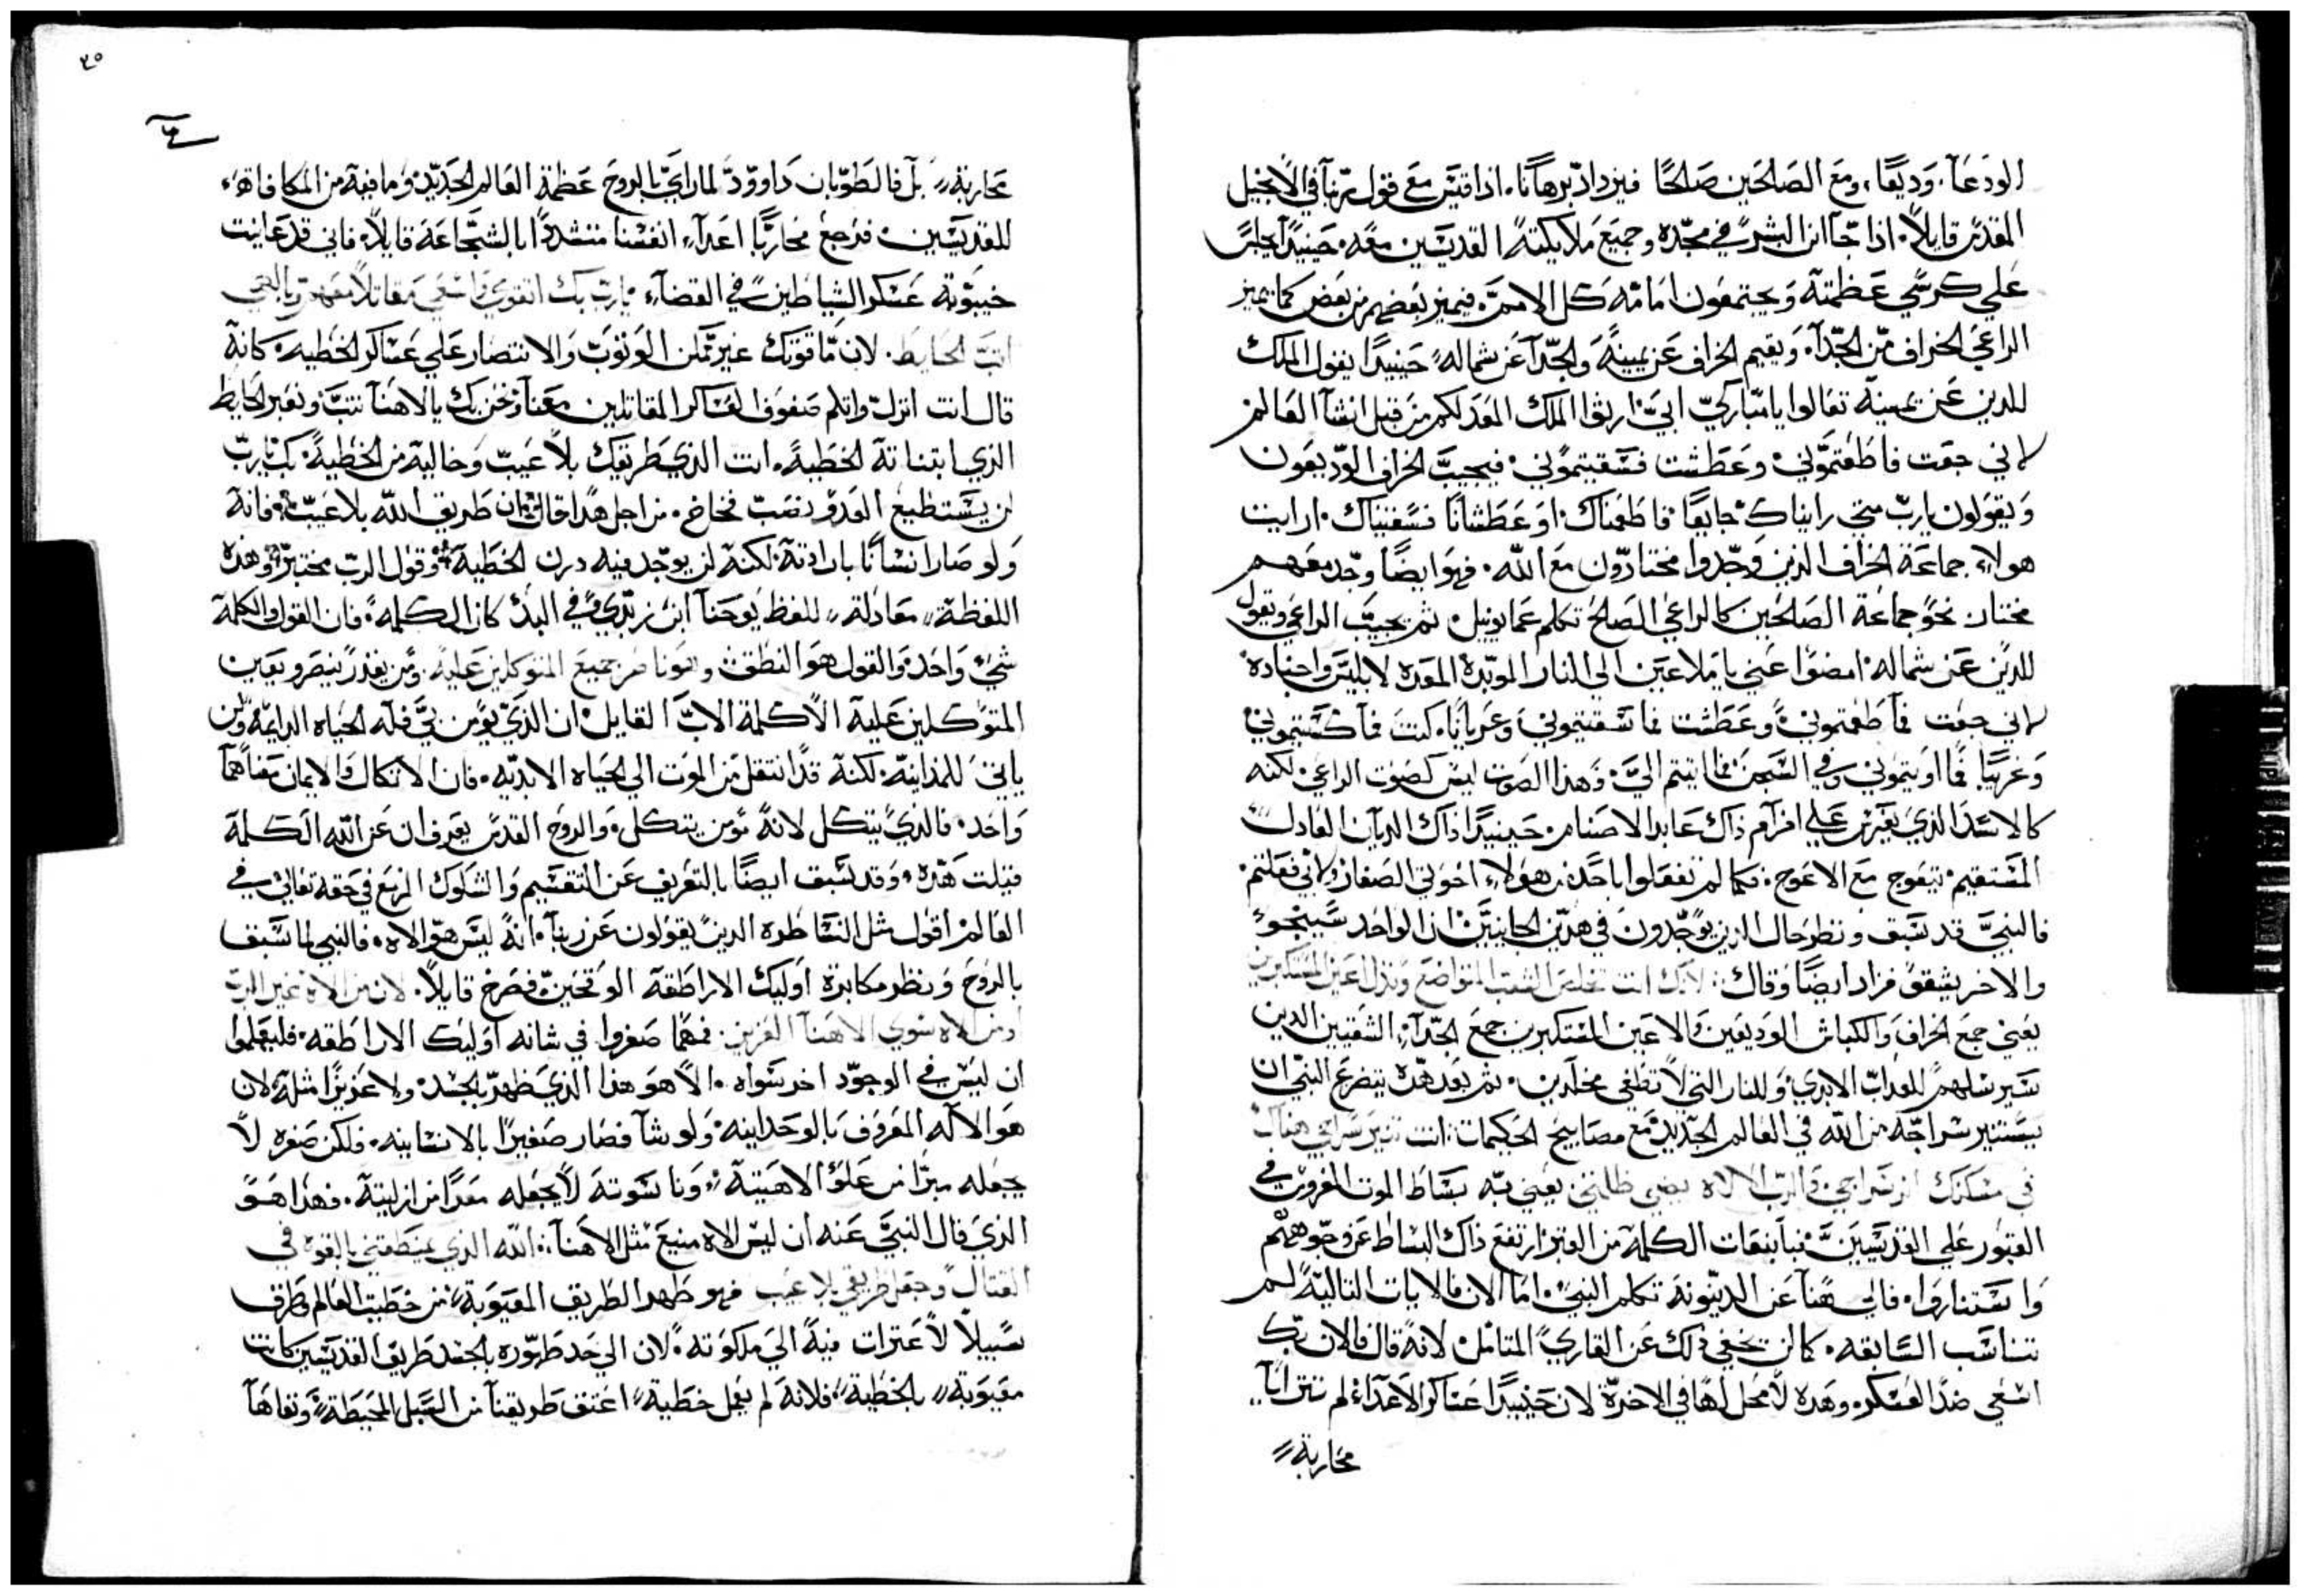 الودعآ، وديعًا، ومع الصالحين صالحًا فيزداد برهانًا. اذا قيس مع قول ربنا في الانجيل
المقدس قايلاً. اذا جآ ابن البشر في مجده وجميع ملايكته القديسين معه. حينيدًا يجلس
علي كرسي عظمته ويجتمعون امامه كل الامم. فيميز بعضهم من بعض كما يميز
الراعي الخراف من الجدآ. ويقيم الخراف عن يمينه والجدآ عن شماله. حينيدًا يقول الملك
للدين عن يمينه تعالوا يا مباركي ابي ارثوا الملك المعد لكم من قبل انشآ العالم
لاني جعت فاطعمتموني وعطشت فسقيتموني. فيجيب الخراف الوديعون
ويقولون يارب متي رايناك جايعًا فاطعمناك. او عطشانًا فسقيناك. ارايت
هولاء جماعة الخراف الذين وجدوا مختارون مع الله. فهو ايضًا وجد معهم
مختار نحو جماعة الصالحين كالراعي الصالح تكلم عمانوييل. ثم يجيب الراعي ويقول
للدين عن شماله. امضوا عني يا ملاعين الي النار الموبدة المعدة لابليس واجناده
لاني جعت فما اطعمتموني وعطشت فما سقيتموني وعريانًا كنت فما كسيتموني
وغريبًا فما اويتموني وفي السجن فما اتيتم اليّ. وهذا الصوت ليس كصوت الراعي. لكنه
كالاسد الذي علي ذاك عابد الاصنام. حينيدًا ذاك الديان العادل
المستقيم. يتعوج مع الاعوج. فكما لم تفعلوا باحد من هولاء اخوتي الصغار ولا بي فعلتم.
فالنبي قد سبق ونظر حال الذين يوجدون في هدين الجانبين ان الواحد سينجو
والاخر يشقي فزاد ايضًا وقال: لانك انت تخلص الشعب المتواضع وتذل اعين المستكبرين
يعني جمع الخراف والكباش الوديعين والاعين المستكبرين جمع الجدآء الشقيين الدين
سيرسلهم للعداب الابدي وللنار التي لا تطفي مخلدين. ثم بعد هده يتضرع النبي ان
يستنير سراجه من الله في العالم الجديد مع مصابيح الحكيمات: انت تنير سراجي
سراجي والرب الالاه يضي ظلمتي: يعني به بساط الموت المفروش في
القبور علي القديسين فبانبعات الكلمة من القبر ارتفع ذاك البساط عن وجوههم
واستناروا. فالي هنا عن الدينونة تكلم النبي. اما الان فالايات التالية لم
تناسب السابقه. كما لن يخفي ذلك عن القاري المتامل لانه قال فالان بك
اسعي ضد العسكر. وهده لا محل لها في الاخرة لان حينيدًا عساكر الاعداء لم تترايا
محاربة
٣٥
محاربة، بل فالطوبان داوود لما راي بالروح عظمة العالم الجديد وما فيه من المكافاة
للقديسين. فرجع محاربًا اعدآء انفسنا متشددًا بالشجاعة قايلاً. فاني قد عاينت
خيبوبة عسكر الشياطين في القضآء. يارب بك اتقوي واسعي مقاتلاً
الحايط. لان ما قوتك غير ممكن الوثوب والانتصار علي عساكر الخطية. كانه
قال انت انزل واتلم صفوف العساكر المقاتلين معنا ونحن بك يا الاهنا نثب ونعبر الحايط
الذي ابتناته الخطية. انت الذي طريقك بلا عيب وخالية من الخطية. بك يارب
لن يستطيع العدو نصب فخاخ. من اجل هذا قال ان طريق الله بلا عيب. فانه
ولو صار انسانًا بارادته. لكنه لن يوجد فيه درن الخطية. وقول الرب مختبر وهذه
اللفظة معادلة للفظ يوحنا ابن زبدي في البدء كان الكلمة. فان القول والكلمة
شي واحد. والقول هو النطق جميع المتوكلين عليه. ومن يقدر ينصر ويعين
المتوكلين عليه الا كلمة الاب القايل. ان الذي يومن بي فله الحياه الدايمة ولن
ياتي للمداينة. لكنه قد انتقل من الموت الي الحياه الابديه. فان الاتكال والايمان معناهما
واحد. فالذي يتكل لانه يومن يتكل. والروح القدس يعرف ان عن الله الكلمة
قيلت هذه. وقد سبق ايضًا بالتعريف عن التقسيم والشكوك المزمع في حقه تعالي في
العالم اقول مثل النساطره الدين يقولون عن ربنا. انه ليس هو الاله. فالنبي لما سبق
بالروح ونظر مكابرة اوليك الاراطقه الوقحين فصرخ قايلاً. لان من الاه غير الرب
ومن الاه سوي الاهنا العزيز. فمهما صغروا في شانه اوليك الاراطقه. فليعلموا
ان ليس في الوجود اخر سواه. الا هو هذا الذي ظهر بالجسد. ولا عزيزًا مثله لان
هو الاله المعروف بالوحدانيه ولو شآ فصار صغيرًا بالانسانيه. فلكن صغره لا
يجعله مبرًا من علو الاهيته. وناسوته لا يجعله معدًا من ازليته. فهذا هو
الذي قال النبي عنه ان ليس الاه منيع مثل الاهنا: الله الذي يمنطقني بالقوه في
القتال وجعل طريقي بلا عيب فهو طهر الطريق المعيوبة من خطيت العالم وطرق
سبيلاً لا عترات فيه الي ملكوته. لان الي حد ظهوره بالجسد طريق القديسين كانت
معيوبة بالخطية. فلانه لم يعمل خطية اعتق طريقنا من السبل المحيطة ونقاها